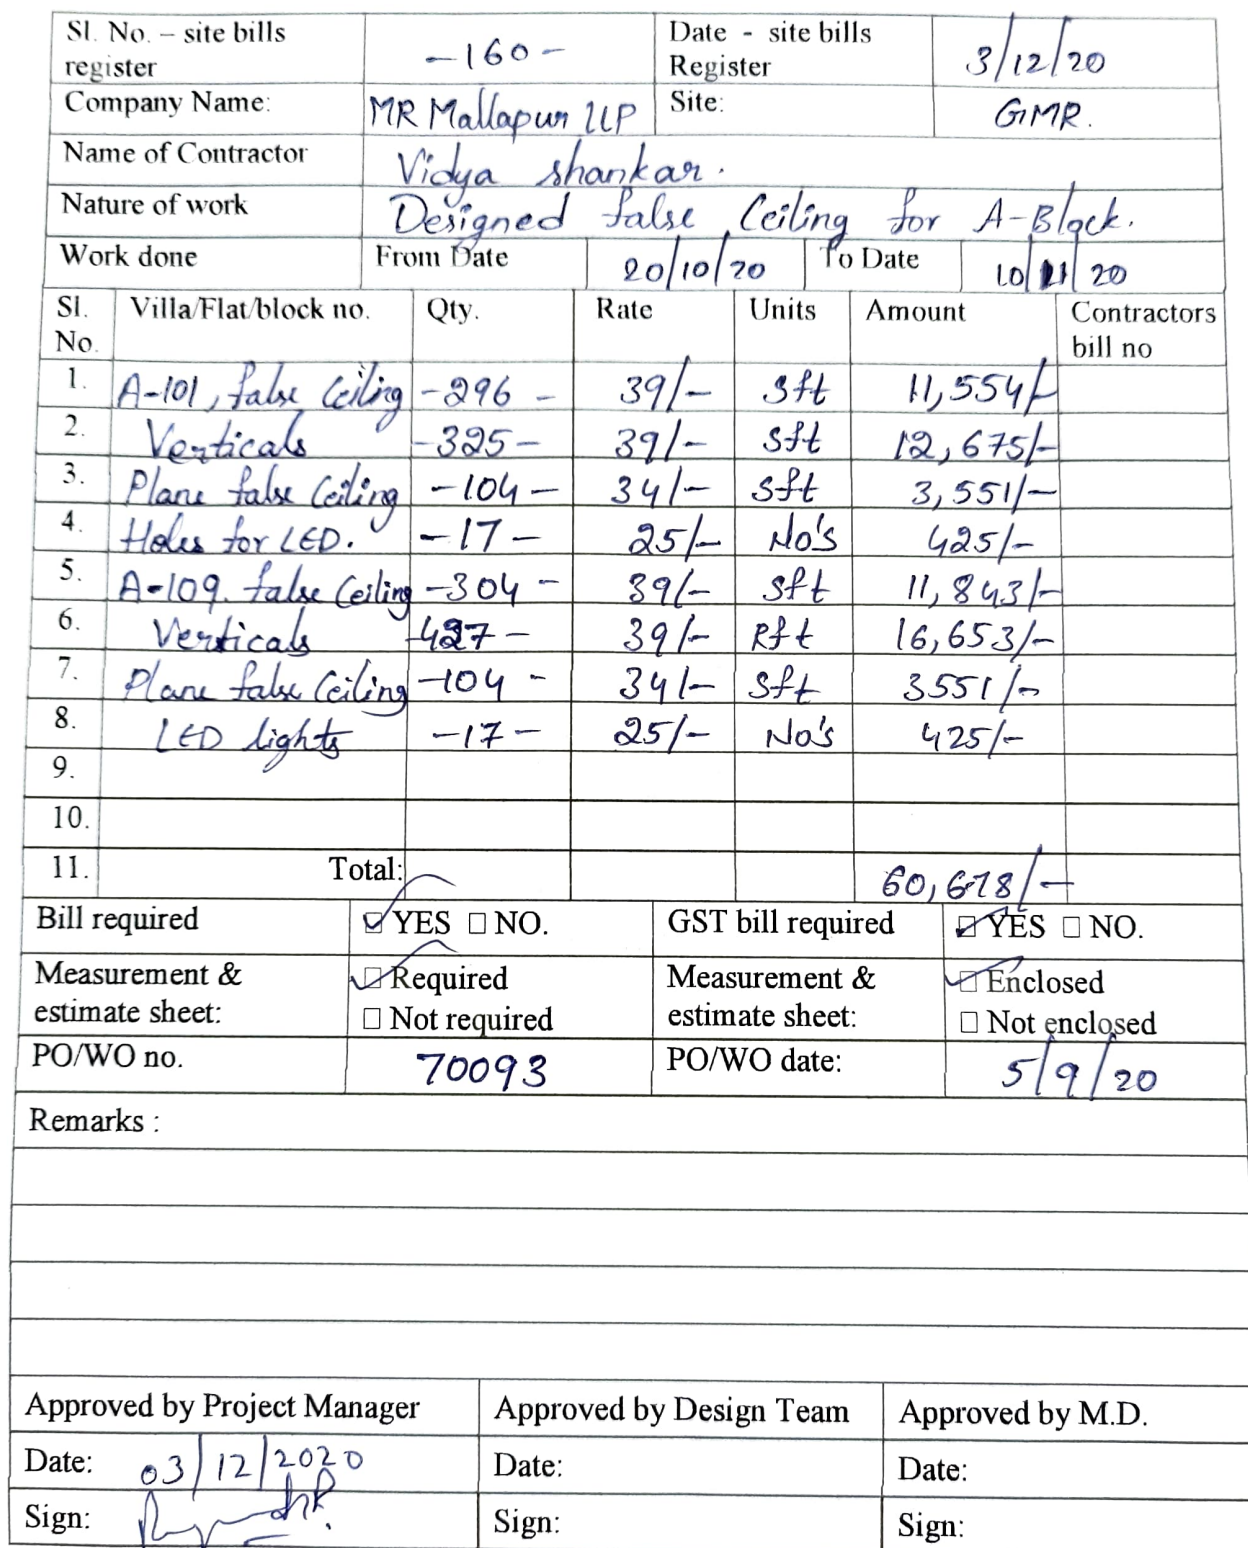 Sl. No. – site bills register -160- Date - site bills Register 3/12/20
Company Name: MR Mallapur LLP Site: GMR.
Name of Contractor Vidya shankar.
Nature of work Designed false Ceiling for A-Block.
Work done From Date 20/10/20 To Date 10/11/20
Sl. No. Villa/Flat/block no. Qty. Rate Units Amount Contractors bill no
1. A-101, false Ceiling -296 - 39/- sft 11,554/-
2. Verticals -325- 39/- sft 12,675/-
3. Plane false Ceiling -104- 34/- sft 3,551/-
4. Holes for LED. -17- 25/- No's 425/-
5. A-109. false Ceiling -304- 39/- sft 11,843/-
6. Verticals -427- 39/- Rft 16,653/-
7. Plane false Ceiling -104- 34/- sft 3551/-
8. LED lights -17- 25/- No's 425/-
9.
10.
11. Total: 60,678/-
Bill required ☑ YES □ NO. GST bill required ☑ YES □ NO.
Measurement & estimate sheet: ☑ Required Measurement & estimate sheet: ☑ Enclosed
□ Not required □ Not enclosed
PO/WO no. 70093 PO/WO date: 5/9/20
Remarks :
Approved by Project Manager Approved by Design Team Approved by M.D.
Date: 03/12/2020 Date: Date:
Sign: Sign: Sign: